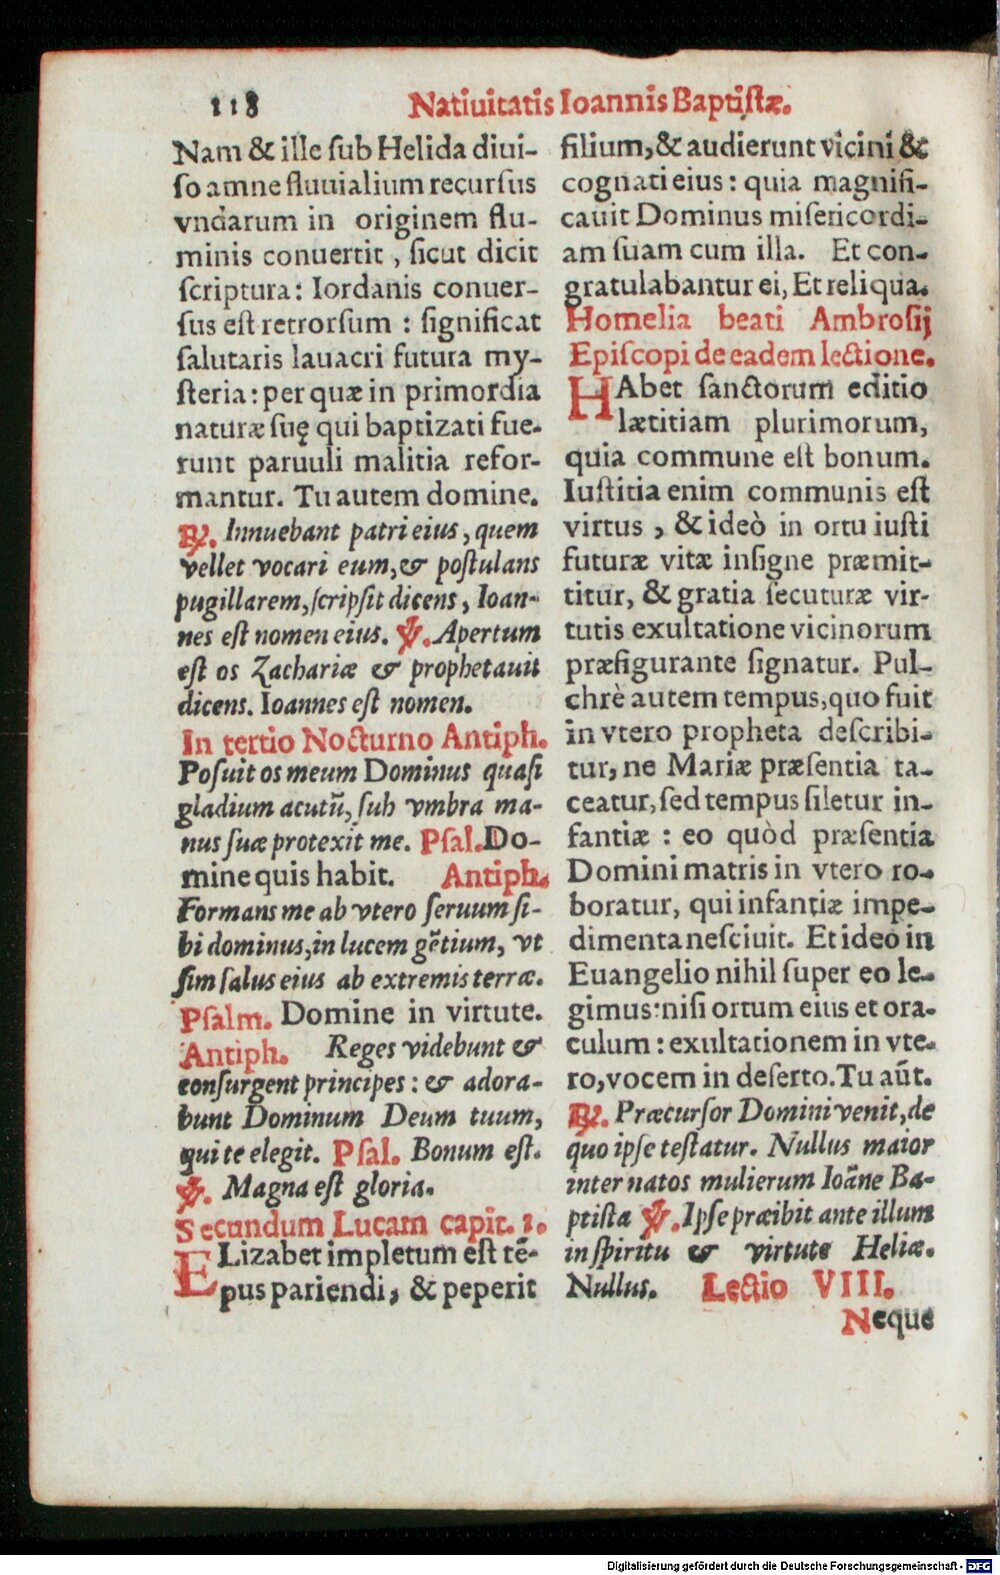 118 Natiuitatis Ioannis Baptistæ.
Nam & ille ſub Helida diui-
ſo amne fluuialium recurſus
vndarum in originem flu-
minis conuertit, ſicut dicit
ſcriptura: Iordanis conuer-
ſus eſt retrorſum: ſignificat
ſalutaris lauacri futura my-
ſteria: per quæ in primordia
naturæ ſuę qui baptizati fue-
runt paruuli malitia refor-
mantur. Tu autem domine.
℟. Innuebant patri eius, quem
vellet vocari eum, & poſtulans
pugillarem, ſcripſit dicens, Ioan-
nes eſt nomen eius. ℣. Apertum
eſt os Zachariæ & prophetauit
dicens. Ioannes eſt nomen.
In tertio Nocturno Antiph.
Poſuit os meum Dominus quaſi
gladium acutũ, ſub vmbra ma-
nus ſuæ protexit me. Pſal. Do-
mine quis habit. Antiph.
Formans me ab vtero ſeruum ſi-
bi dominus, in lucem gẽtium, vt
ſim ſalus eius ab extremis terræ.
Pſalm. Domine in virtute.
Antiph. Reges videbunt &
conſurgent principes: & adora-
bunt Dominum Deum tuum,
qui te elegit. Pſal. Bonum eſt.
℣. Magna eſt gloria.
Secundum Lucam capit. 1.
ELizabet impletum eſt tẽ-
pus pariendi, & peperit
filium, & audierunt vicini &
cognati eius: quia magnifi-
cauit Dominus miſericordi-
am ſuam cum illa. Et con-
gratulabantur ei, Et reliqua.
Homelia beati Ambroſij
Epiſcopi de eadem lectione.
HAbet ſanctorum editio
lætitiam plurimorum,
quia commune eſt bonum.
Iuſtitia enim communis eſt
virtus, & ideò in ortu iuſti
futuræ vitæ inſigne præmit-
titur, & gratia ſecuturæ vir-
tutis exultatione vicinorum
præfigurante ſignatur. Pul-
chrè autem tempus, quo fuit
in vtero propheta deſcribi-
tur, ne Mariæ præſentia ta-
ceatur, ſed tempus ſiletur in-
fantiæ: eo quòd præſentia
Domini matris in vtero ro-
boratur, qui infantiæ impe-
dimenta neſciuit. Et ideo in
Euangelio nihil ſuper eo le-
gimus: niſi ortum eius et ora-
culum: exultationem in vte-
ro, vocem in deſerto. Tu aũt.
℟. Præcurſor Domini venit, de
quo ipſe teſtatur. Nullus maior
inter natos mulierum Ioãne Ba-
ptiſta ℣. Ipſe præibit ante illum
in ſpiritu & virtute Heliæ.
Nullus. Lectio VIII.
Neque
Digitalisierung gefördert durch die Deutsche Forschungsgemeinschaft - DFG